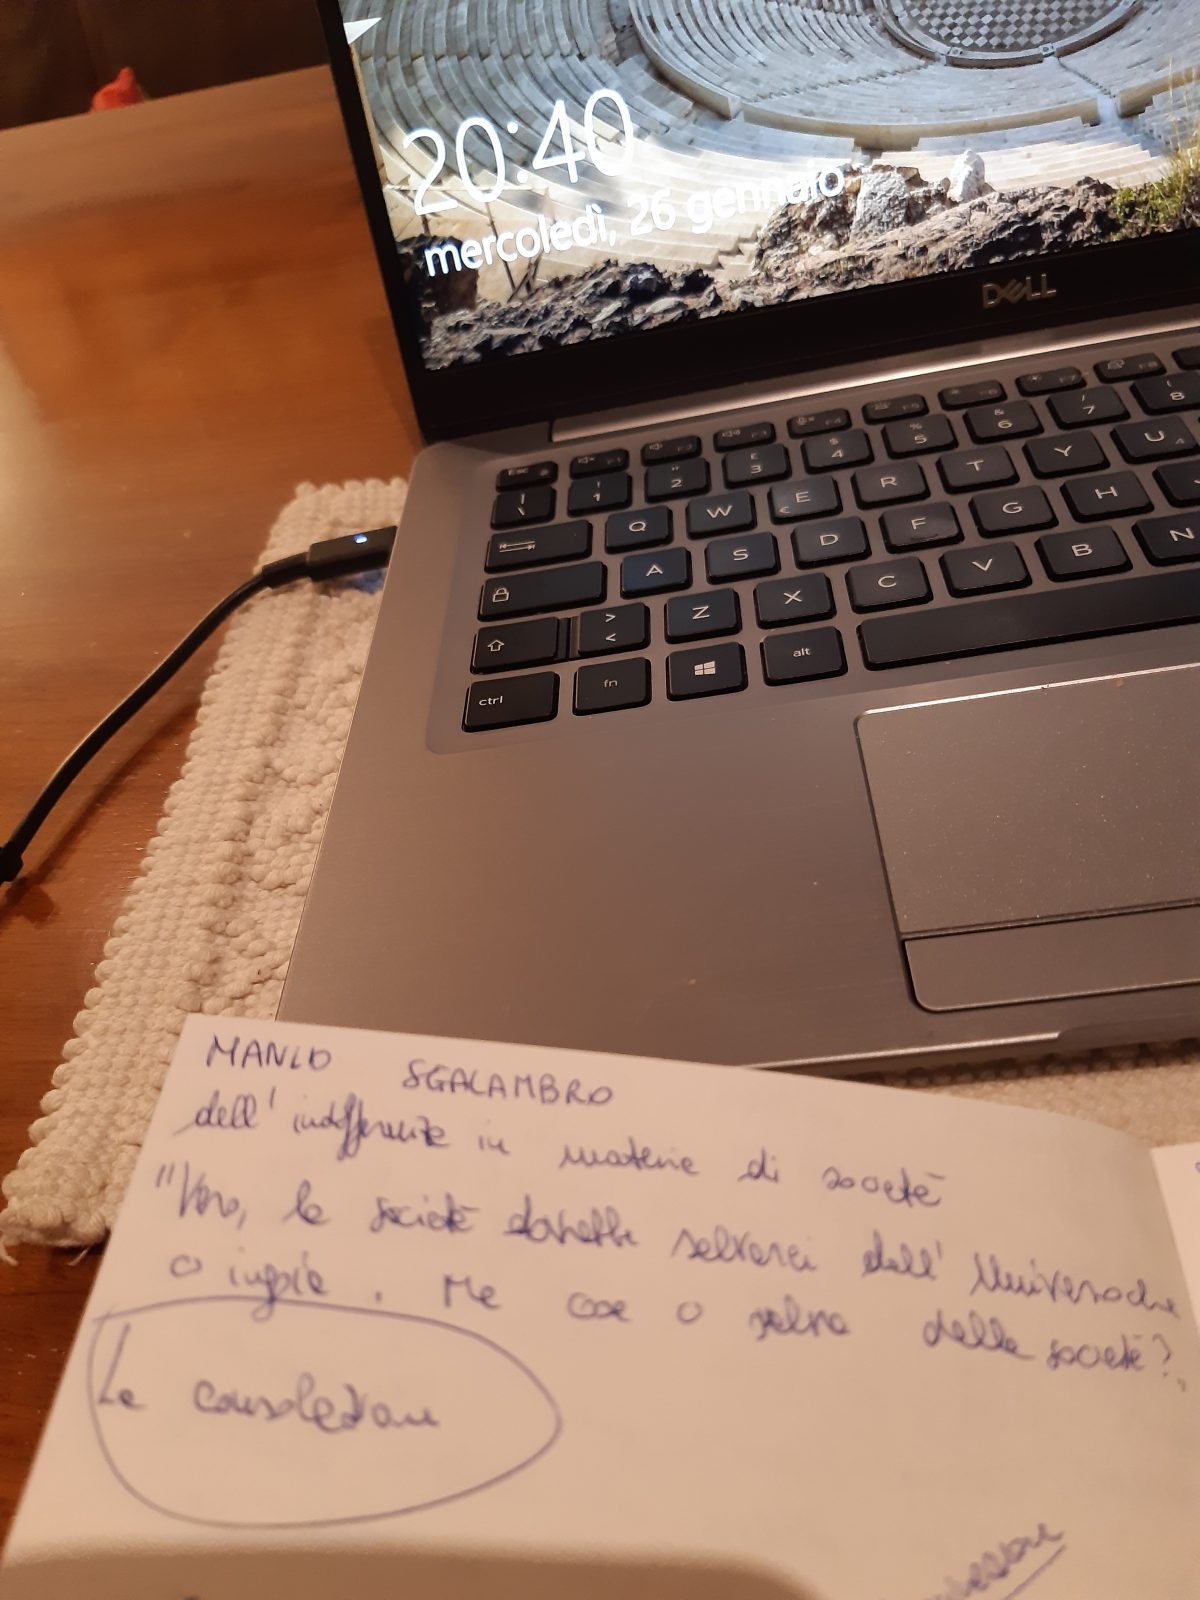 20:40
mercoledì, 26 gennaio
DELL
Esc F1 F2 F3 F4 F5 F6 F7 F8
| \ ! 1 " 2 £ 3 $ 4 % 5 & 6 / 7 ( 8
Q W E € R T Y U 4
A S D F G H
> < Z X C V B N
ctrl fn alt
MANLIO SGALAMBRO
dell'indifferenza in materia di società
"Vero, la società dovrebbe salvarci dall'Universo che
ci ingoia. Ma cosa ci salva dalla società?"
La consolazione